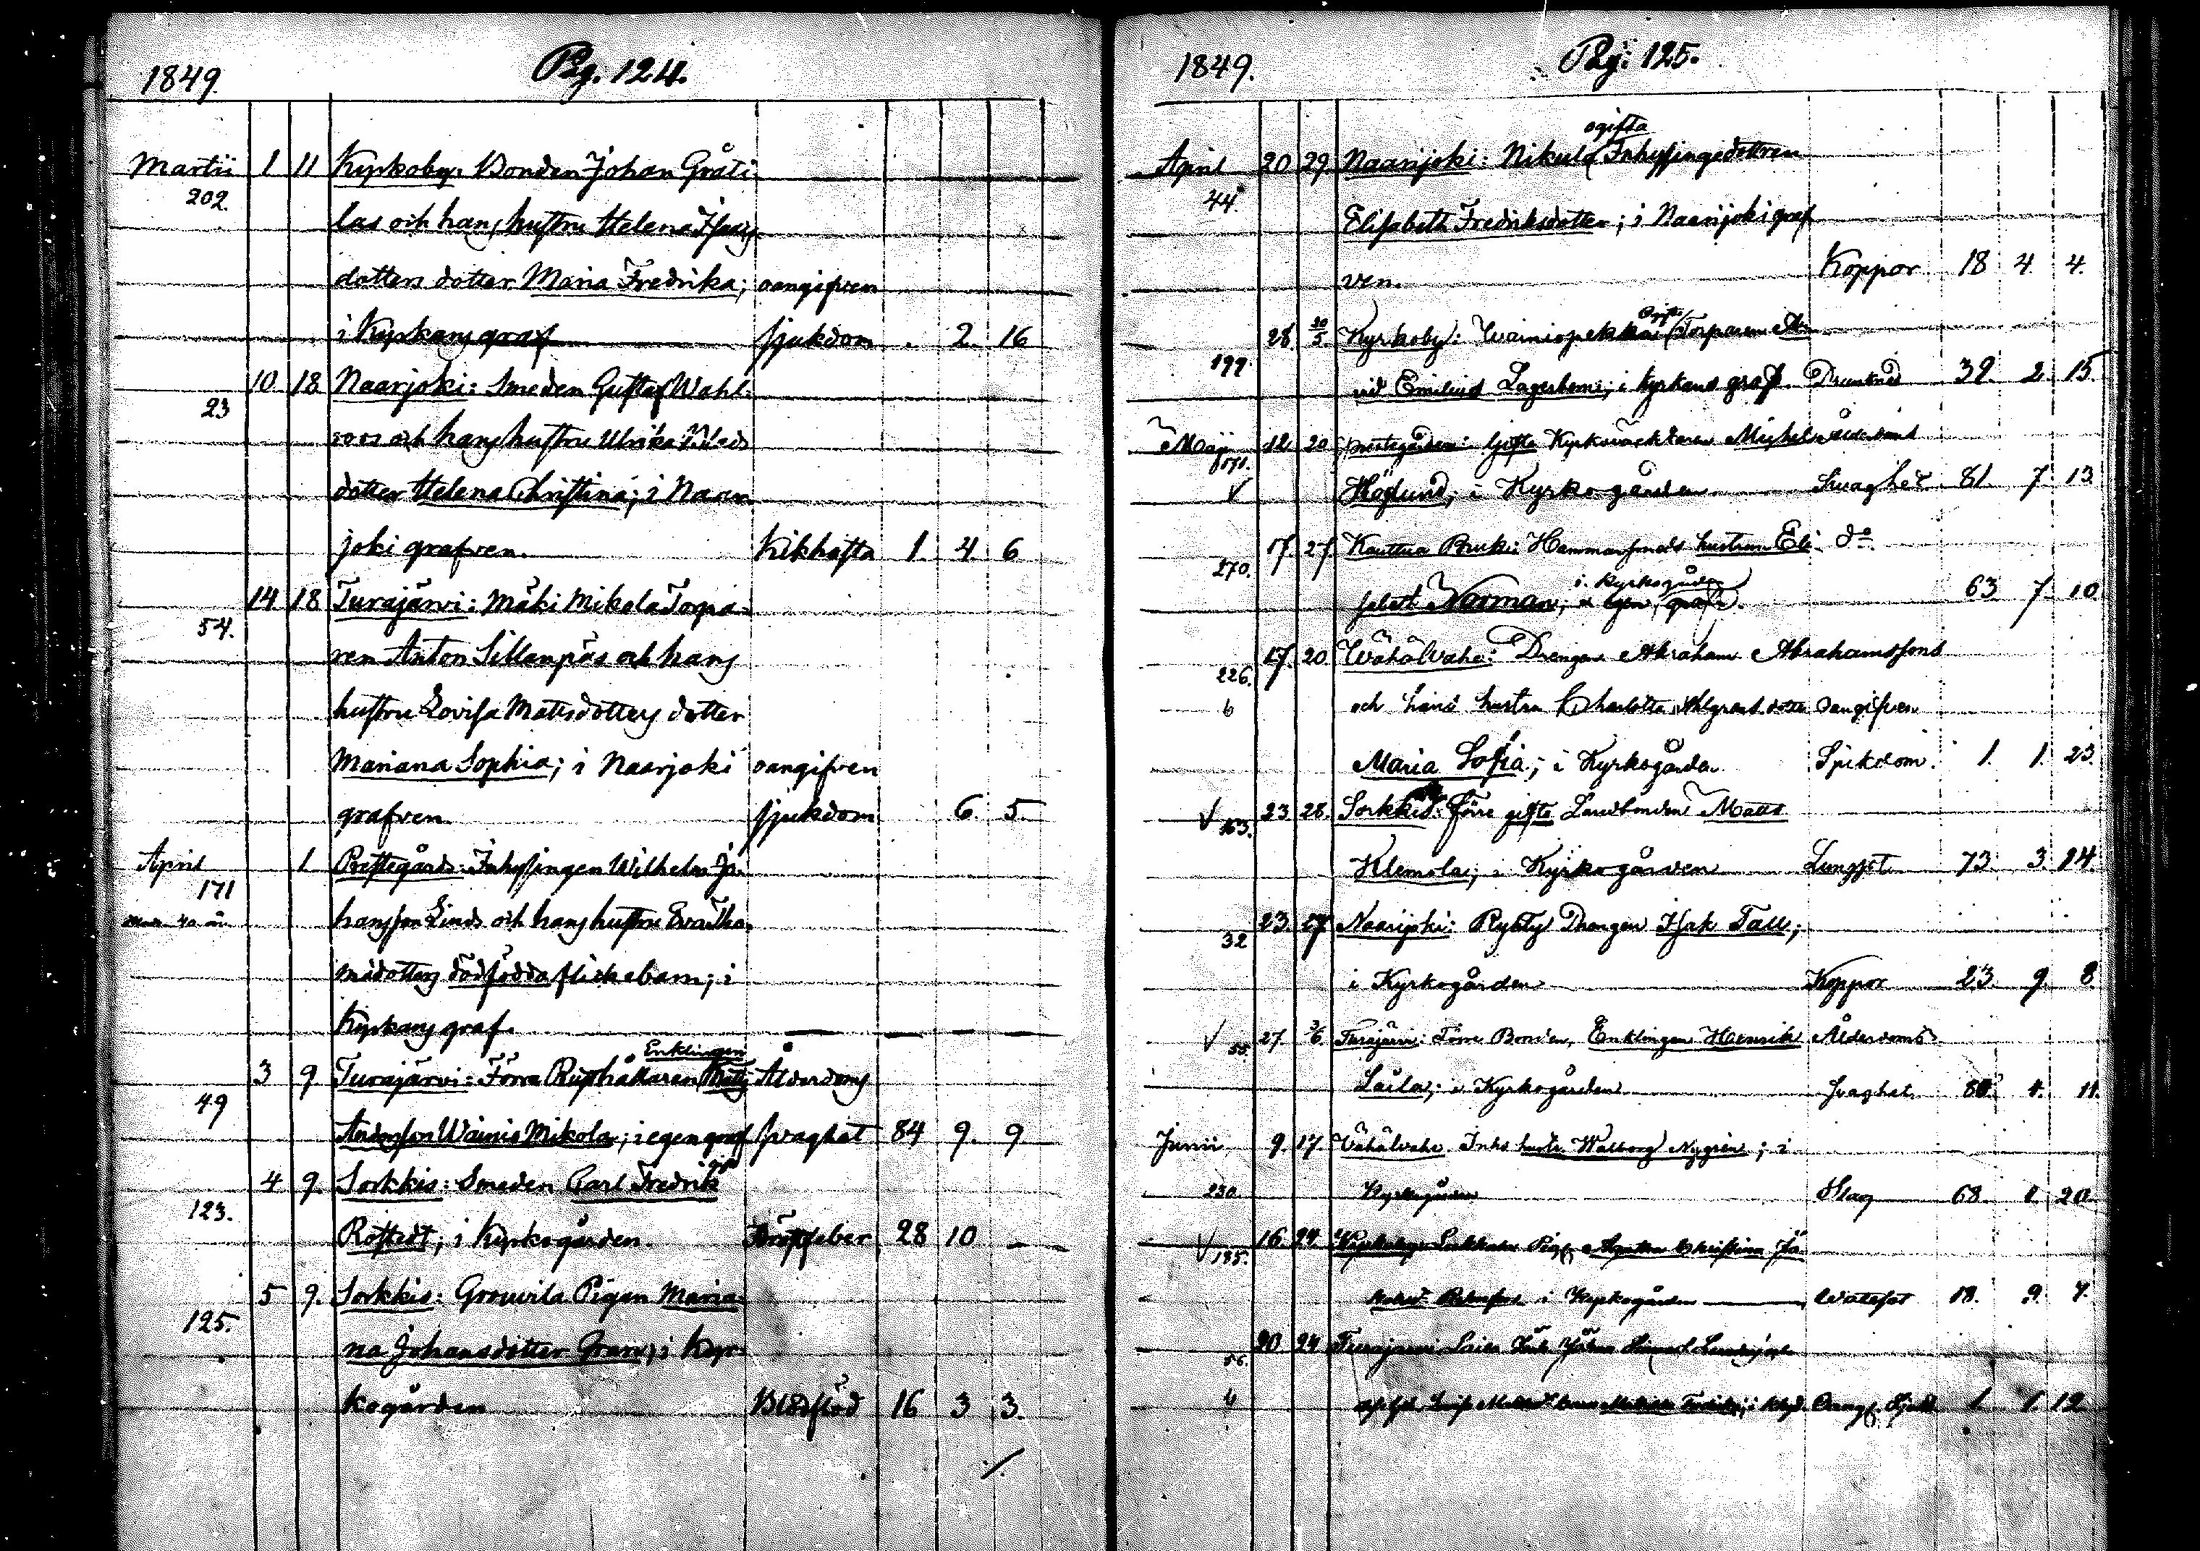 1849. Pag. 124.
Martii 1 11 Kyrkoby: Bonden Johan Gråti
202. las och hans hustru Helena Isaks
dotters dotter Maria Fredrika; oangifven
i Kyrkans graf sjukdom . 2. 16
10. 18 Naarjoki: Smeden Gustaf Wahl-
23 roos och hans hustru Ulrika
dotter Helena Christina; i Naar
joki grafven. Kikhosta 1. 4 6
14 18 Turajärvi: Mäki Mikola Torpa-
54. ren Anton Sillanpää och hans
hustru Lovisa Matsdotters dotter
Mariana Sophia; i Naarjoki oangifven
grafven. sjukdom 6 5.
April 1 Prestegård: Inhysingen Wilhelm Jo-
171 hansson Linds och hans hustru Eva Tho-
40 år
mædotters dödfödda flickebarn; i
Kyrkans graf.
Enklingen
3 9 Turajärvi: Förra Rusthållaren Matts Ålderdoms
49 Andersson Wainio Mikola; i egen graf svaghet 84 9. 9
4 9. Sorkkis: Smeden Carl Fredrik
123. Rostedt; i Kyrkogården. feber 28 10 –
5 9. Sorkkis: Grouvila Pigan Maria-
125. na Johansdotter Gran; i Kyr
kogården Blodflöd 16 3 3.
1849. Pag. 125.
ogifta
April 20 29. Naarijoki: Nikula Inhysingedottren
44 Elisabeth Fredriksdotter; i Naarijoki graf
ven. Koppor 18 4. 4.
28 20/5 Kyrkoby: Wainiopekka Torparen
199. vid Emilius Lagerbom; i Kyrkans graf. Drunknad 39. 2. 15.
Maji 12. 20 Prestegården: Gifte Kyrkväcktaren Michel Ålderdoms
171. Höglund; i Kyrkogården Svaghet 81. 7. 13
17. 27. Kauttua Bruk: Hammarsmeds hustrun Eli- do
i Kyrkogården
270. sabet Norman; i egen graf. 63 7. 10
17. 20 Wähälvahe: Drengen Abraham Abrahamssons
226. 6 och hans hustru Charlotta Ahlgrens dotter Oangifven
Maria Sofia; i Kyrkogården Sjukdom. 1. 1. 23.
V 163. 23. 28. Sorkkis: Förre gifte Landbonden Matts
Klemola; i Kyrkogården Lungsot 73. 3. 24.
32 23. 27 Naarijoki: Rybty Drengen Isak Tall;
i Kyrkogården Koppor 23. 9. 8
V 50. 27. 3/6 Turajärvi: Förre Bonden, Enklingen Henrik Ålderdoms
Laila; i Kyrkogården svaghet 11.
Junii 9. 17. Wähälvahe Inhs hustr. Walborg Nygren; i
230 Kyrkogården Slag 68. 20
V 185. 16. 24 Kyrkoby: Pig. Agata Christina
i Kyrkogården Watusot 18. 9. 7.
56. 20 24 Turajärvi
4 Oang. Sjukd. 1 1 12